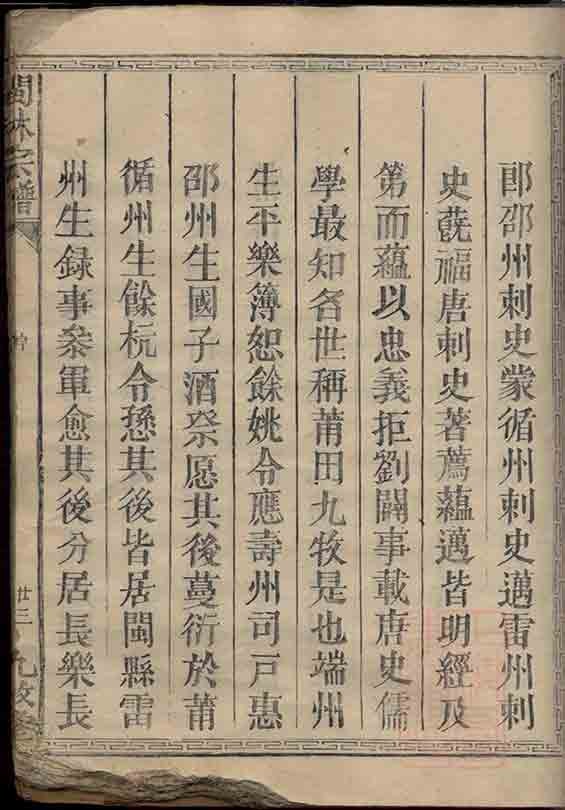 郎邵州刺史蒙循州刺史邁雷州刺
史蔇福唐刺史著薦蘊邁皆明經及
第而蘊以忠義拒劉闢事載唐史儒
學最知名世稱莆田九牧是也端州
生平樂簿恕餘姚令應壽州司戸惠
邵州生國子酒祭愿其後蔓衍於莆
循州生餘杭令愻其後皆居閩縣雷
州生録事叅軍愈其後分居長樂長
閩林宗譜
廿三
九牧